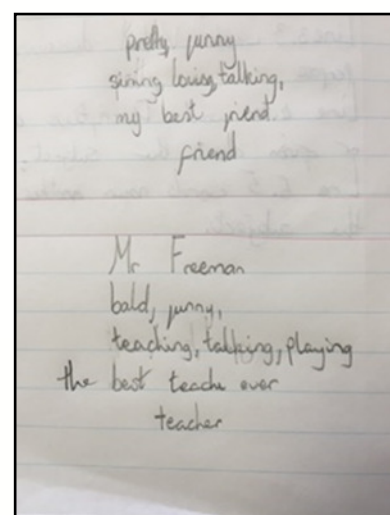 pretty, funny
sining, loving, talking,
my best friend.
friend
Mr Freeman
bald, funny,
teaching, talking, playing
the best teache ever
teacher